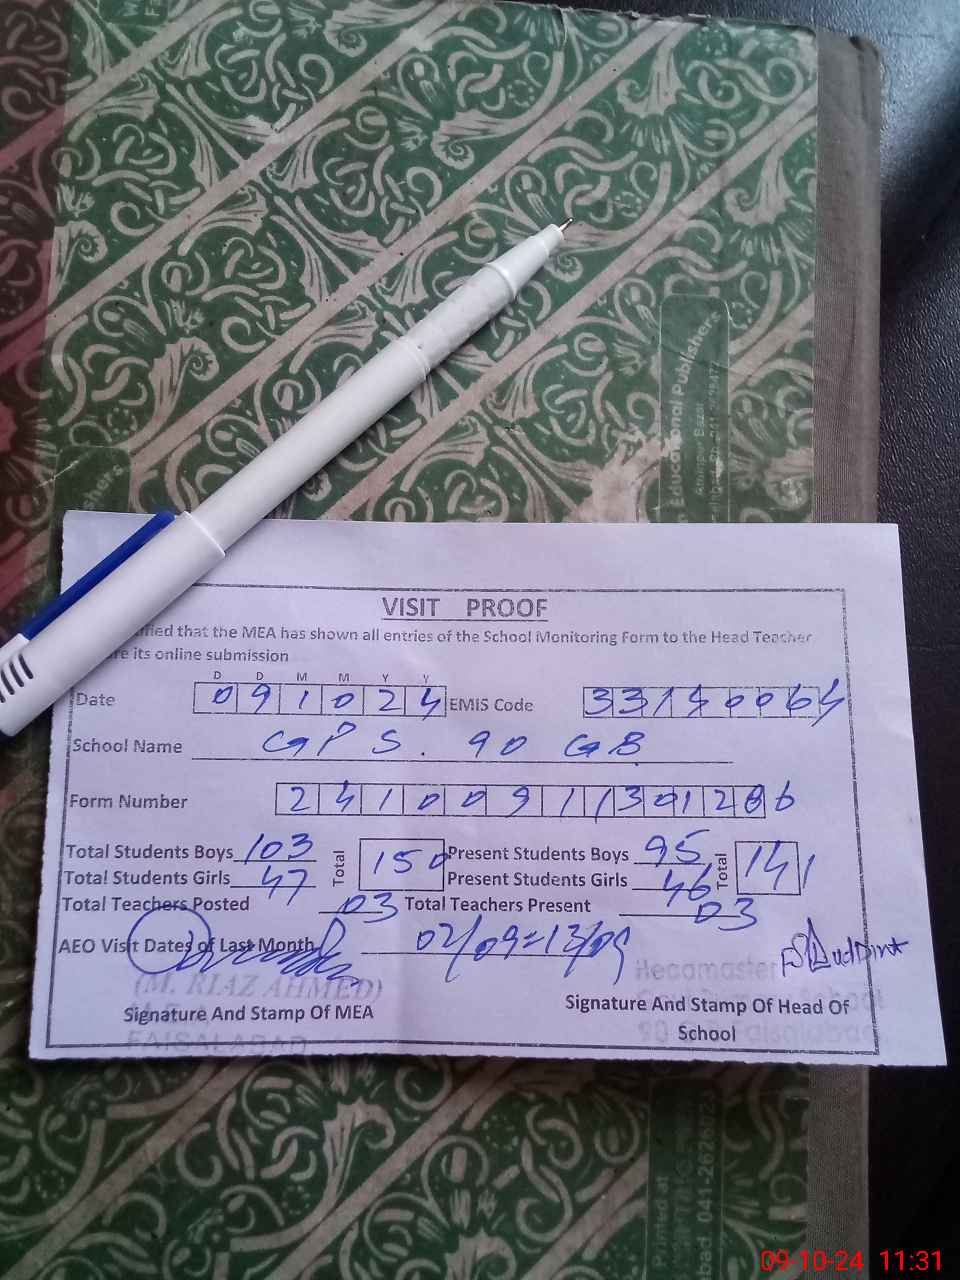 Educational Publishers
Aminpur Bazar
VISIT PROOF
that the MEA has shown all entries of the School Monitoring Form to the Head Teacher
its online submission
D D M M Y Y
Date 0 9 1 0 2 4 EMIS Code 3 3 1 4 0 0 6 4
School Name GPS. 90 GB
Form Number
Total Students Boys 103 Total 150 Present Students Boys 95 Total 141
Total Students Girls 47 Present Students Girls 46
Total Teachers Posted 03 Total Teachers Present 03
AEO Visit Dates of Last Month 02/09=13/09
(M. RIAZ AHMED)
Signature And Stamp Of MEA Signature And Stamp Of Head Of
School
FAISALABAD
Printed at
09-10-24 11:31